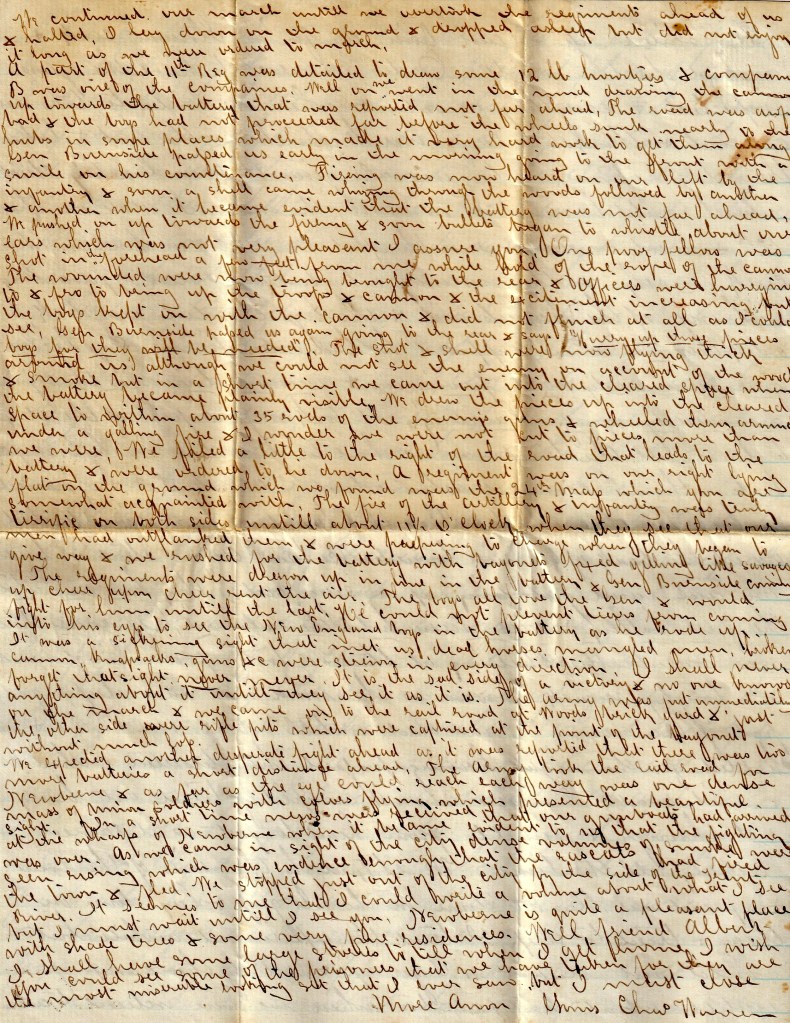 We continued our march untill we overtook the regiments ahead of us
& halted, I lay down on the ground & dropped asleep but did not enjoy
it long as we were ordered to march.
A part of the 11th Reg was detailed to draw some 12 lb howitzers & company
B was one of the companies. Well on we went in the mud drawing the cannon
up towards the battery that was reported not far ahead, The road was
bad & the boys had not proceeded far before the wheels sunk nearly to the
hubs in some places which made it very hard work to get them along
Gen Burnside passed us early in the morning going to the front with a
smile on his countinance, Firing was now heard on our left by the
infantry & soon a shell came whizing through the woods followed by another
& another when it became evident that the battery was not far ahead,
We pushed on up towards the firing & soon bullets began to whistle about our
ears which was not very pleasant I assure you, One poor fellow was
shot in the forehead a few feet from me while hold of the rope of the cannon
The wounded were now being brought to the rear & Officers were hurreing
to & fro to bring up the troops & cannon & the excitement increasing but
the boys kept on with the cannon & did not flinch at all as I could
see, Gen Burnside passed us again going to the rear & says "Hurry up those pieces
boys for they will be needed". The shot & shell were now flying thick
around us although we could not see the enemy on account of the woods
& smoke but in a short time we came out into the cleared space when
the battery became plainly visible, We drew the pieces up into the cleared
space to within about 35 rods of the enemies guns & wheeled them around
under a galling fire & I wonder we were not cut to pieces more than
we were, We filed a little to the right of the road that leads to the
battery & were ordered to lie down, A regiment was on our right lying
flat on the ground which we found was the 24th Mass which you are
somewhat acquainted with, The fire of the artillery & infantry was truly
terific on both sides untill about 11½ O'Clock when they see that our
men had outflanked them & were prepairing to charge when they began to
give way & we rushed for the battery with bayonets fixed yelling like savages
The regiments were drawn up in line in the battery & Gen Burnside coming
up cheer upon cheer rent the air. The boys all love the Gen & would
fight for him untill the last. He could not prevent tears from coming
into his eyes to see the New England boys in the battery as he rode up.
It was a sickening sight that met us, dead horses, mangled men, broken
cannon, knapsacks, guns &c were strewn in every direction. I shall never
forget that sight never never. It is the sad side of a victory & no one knows
anything about it untill they see it as it is. The army was put immediately
on the march & we came on to the rail road at Woods brick yard & just
the other side were rifle pits which were captured at the point of the bayonet
without much loss.
We expected another desperate fight ahead as it was reported that there was two
more batteries a short distance ahead, The army took the rail road for
Newberne & as far as the eye could reach each way was one dense
mass of Union soldiers with colors flying which presented a beautiful
sight. In a short time news was received that our gunboats had arrived
at the wharfs of Newberne when it became evident to us that the fighting
was over. As we came in sight of the city dense volumes of smoke were
seen rising which was evidence enough that the rascals had fired
the town & fled. We stopped just out of the city by the side of the Trent
River. It seemes to me that I could write a volume about what I see
but I must wait untill I see you, Newberne is quite a pleasant place
with shade trees & some very fine residences. Well friend Albert
I shall have some large stories to tell when I get home, I wish
you could see some of the prisoners that we have taken for they are
the most miserable looking set that I ever saw. but I must close
More Anon Yours Chas Warren